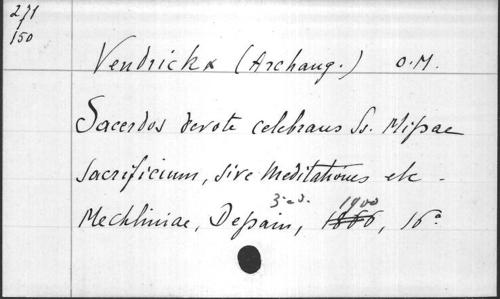 271
150
Vendrickx (Archang.) O.M.
Sacerdos devote celebrans Ss. Missae
sacrificium, sive Meditationes etc.
3e ed. 1900
Mechliniae, Dessain, 1866, 16°